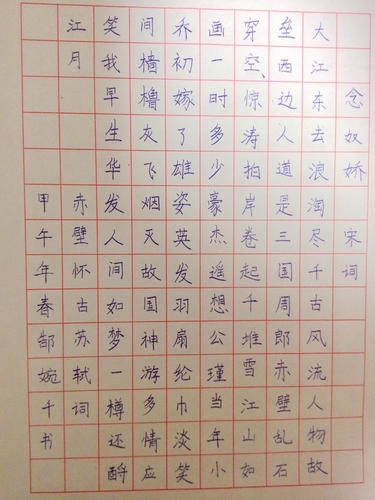 念奴娇 宋词
大江东去浪淘尽千古风流人物故
垒西边人道是三国周郎赤壁乱石
穿空、惊涛拍岸卷起千堆雪江山如
画一时多少豪杰遥想公瑾当年小
乔初嫁了雄姿英发羽扇纶巾淡笑
间樯橹灰飞烟灭故国神游多情应
笑我早生华发人间如梦一樽还酹
江月 赤壁怀古苏轼词
甲午年春郜婉千书